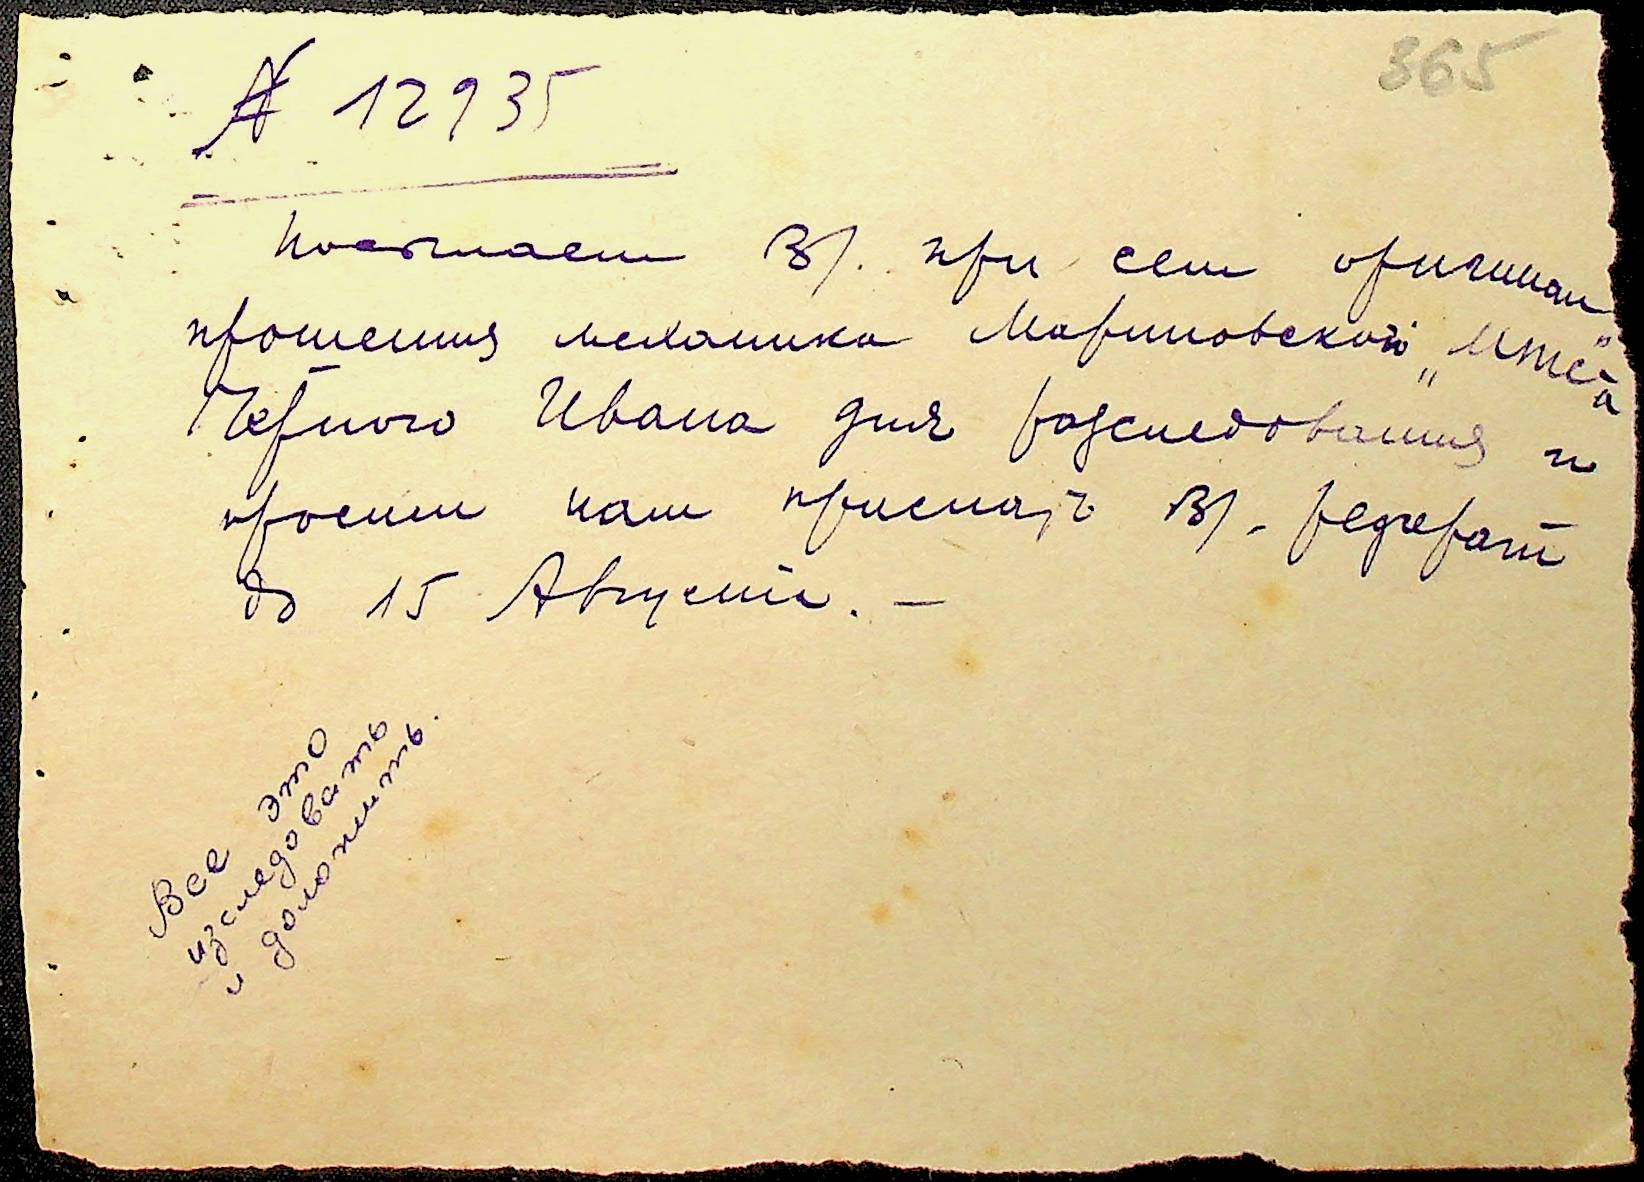 365
№ 12935
Посылаем В/. при сем оригинал
прошения механика Мариновской „МТС"а
Черного Ивана для разследования и
просим нам прислать В/. реферат
до 15 Августа. —
Все это
изследовать
и доложить.